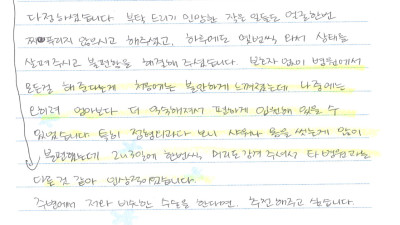 다정하셨습니다 부탁 드리기 민망한 작은 일들도 얼굴한번
찌푸리지 않으시고 해주셨고, 하루에도 몇번씩 와서 상태를
살펴주시고 불편함을 해결해 주셨습니다. 보호자 없이 병원에서
모든걸 해준다는게 처음에는 불안하게 느껴졌는데 나중에는
오히려 엄마보다 더 익숙해져서 편하게 입원해 있을 수
있었습니다 특히 정형외과다 보니 샤워나 몸을 씻는게 많이
불편했는데 2~3일에 한번씩 머리도 감겨 주셔서 타 병원과는
다른것 같아 인상적이었습니다.
주변에서 저와 비슷한 수술을 한다면 추천해주고 싶습니다.